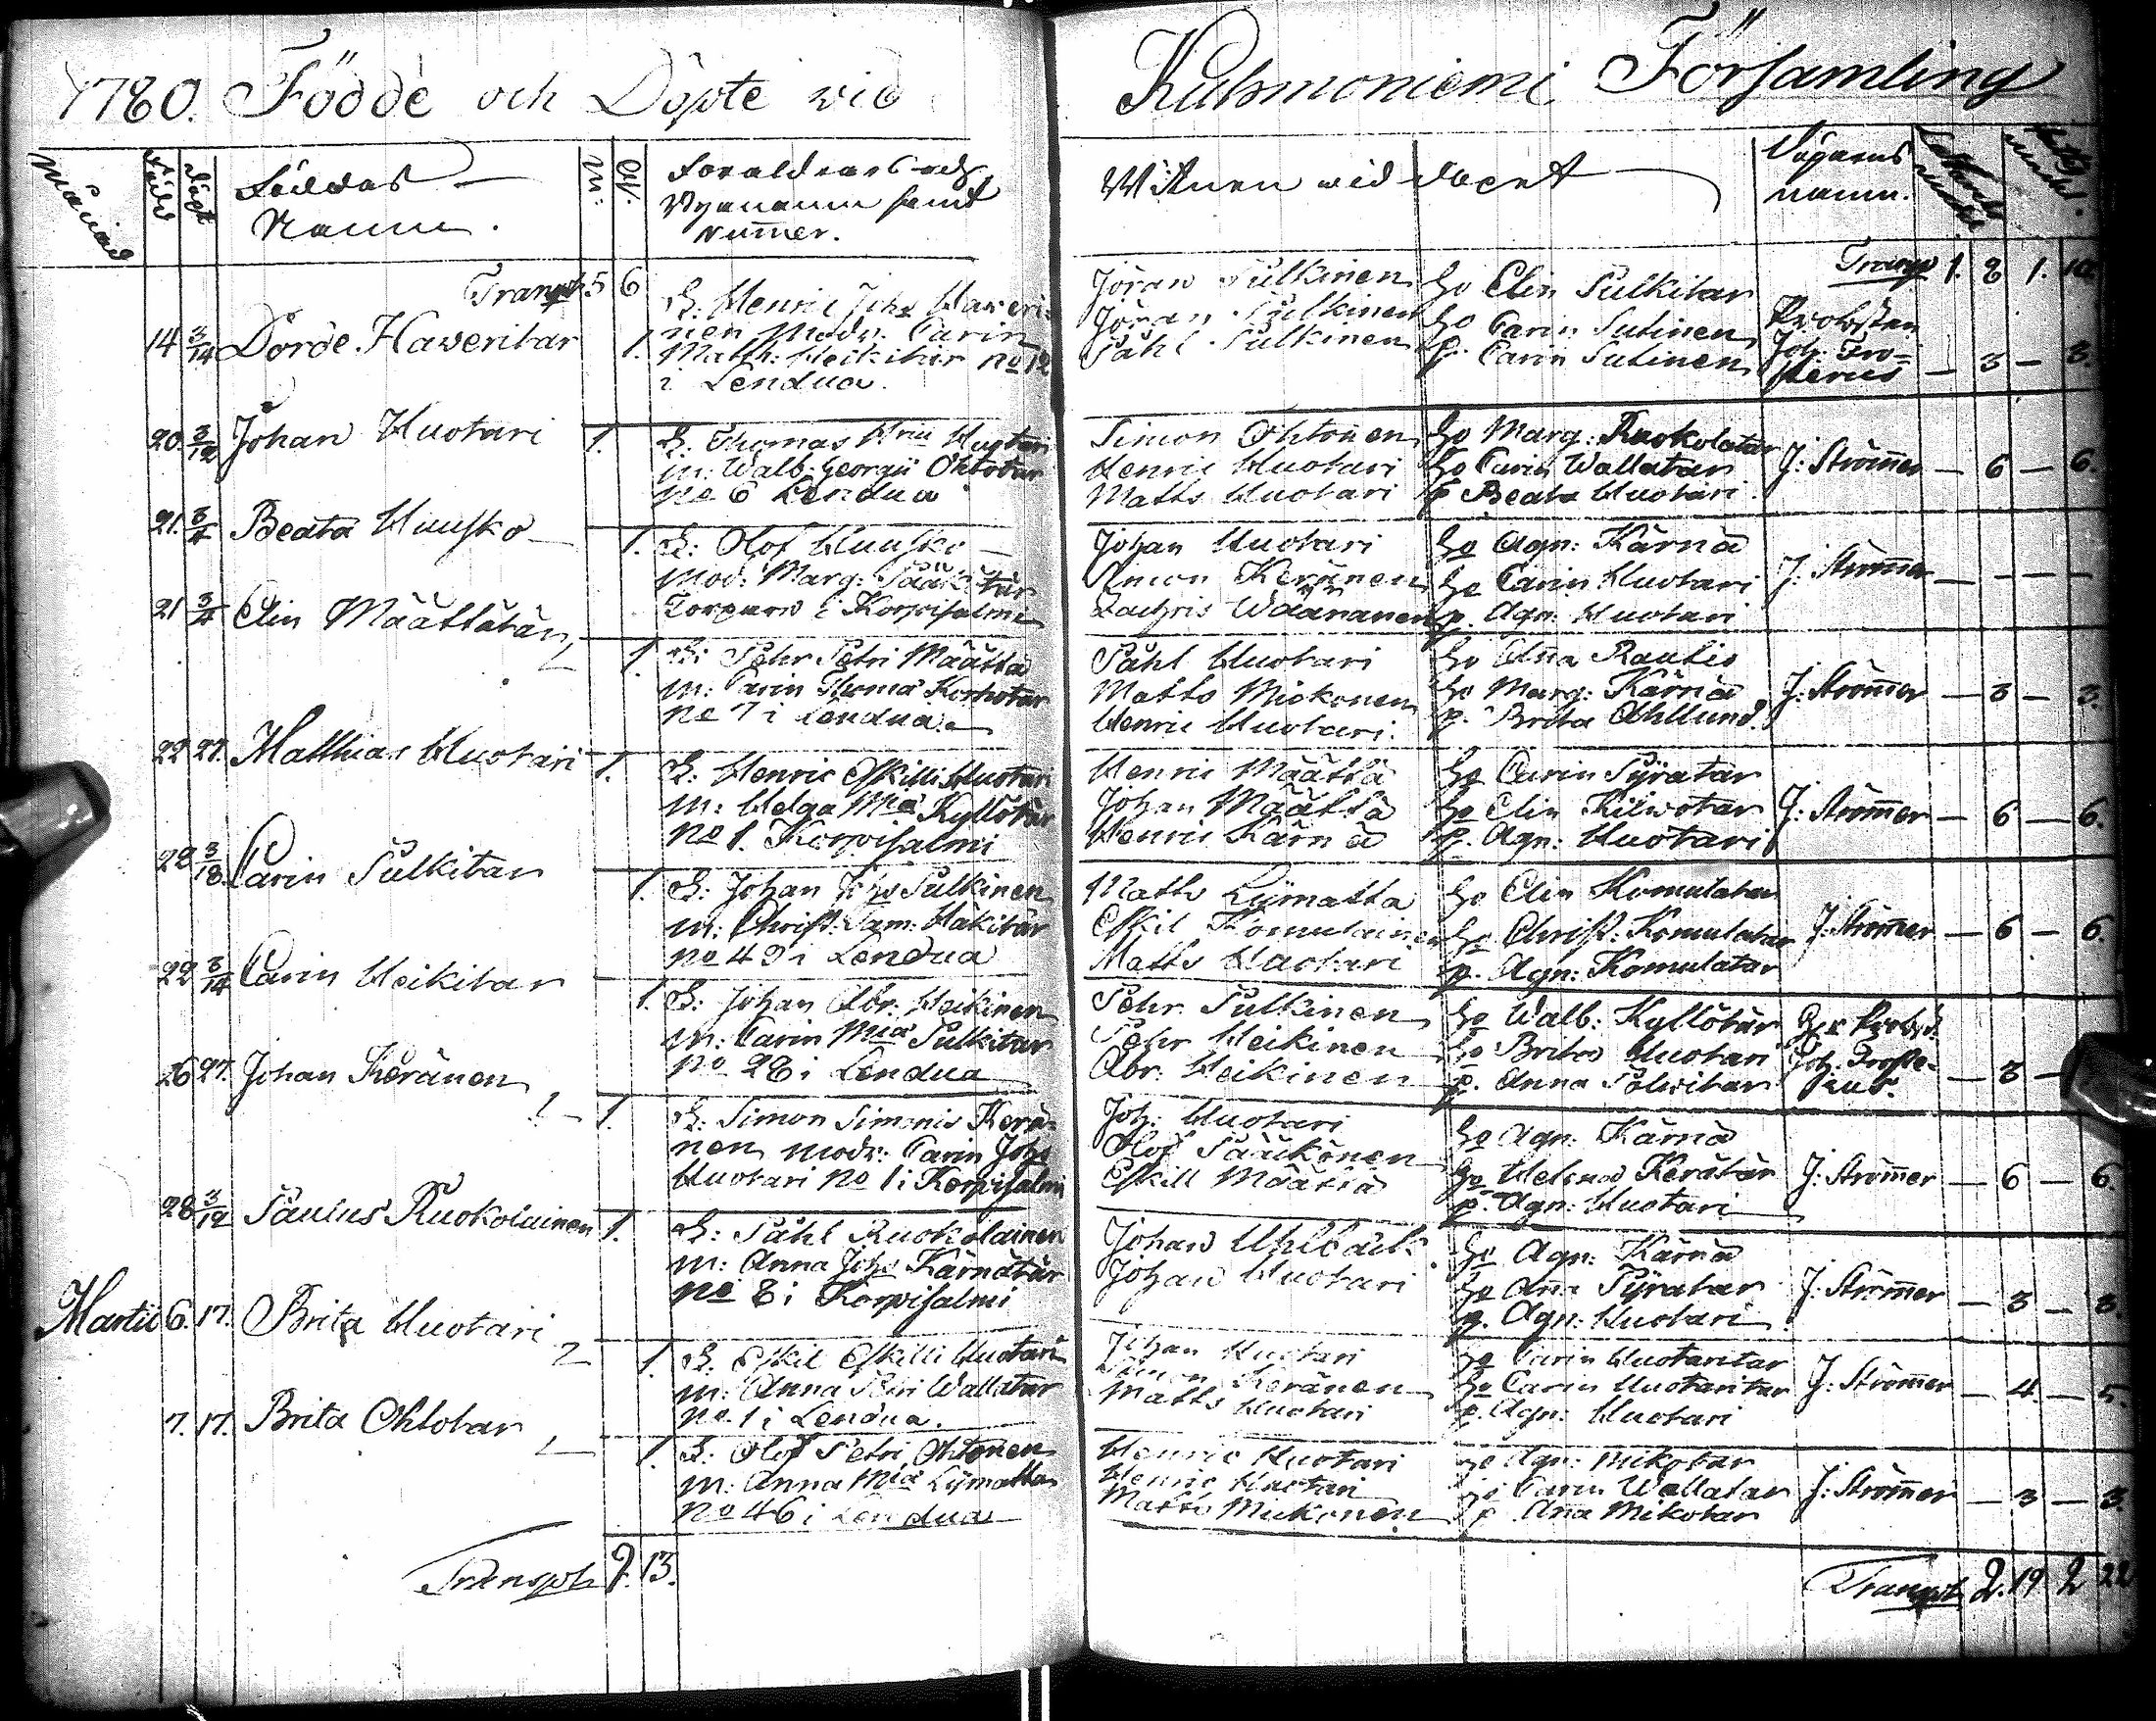 1780. Födde och Döpte vid Kuhmoniemi Församling
Månad
Född
Döpt
Födedas
Namn.
M:
Qv:
Föräldrars och
Bynamn samt
Nummer.
Wittnen wid dopet
Döparens
namn.
Transpt 5 6
Transp 1. 8 1. 10.
14 3/14 Dorde Haveritar 1.
F: Henric Johs Haveri-
nen Modr: Carin
Matth: Heikitar No 12
i Lendua.
Jöran Pulkinen
Jöran Pulkinen
Påhl Pulkinen
Ho Elin Pulkitar
Ho Carin Sutinen
p. Carin Sutinen
Probsten
Joh: Fro-
sterus
— 3 — 3.
20. 3/12 Johan Huotari 1.
F. Thomas Hrici Huotari
M: Walb: Georgii Ohtotar
No 6 Lendua
Simon Ohtonen
Henric Huotari
Matts Huotari
Ho Marg: Ruokolatar
Ho Carin Wallatar
p Beata Huotari
J: Strömer — 6 — 6.
21. Beata Huusko — 1.
F: Olof Huusko —
Mod: Marg: Pääkitär
Torpare i Korpisalmi
Johan Huotari
Simon Keränen
Zachris Wäänänen
Ho Agn: Kärnä
Ho Carin Huotari
p. Agn: Huotari
J: Strömer — — — —
21 Elin Määttätär 1.
F: Pehr Petri Määttä
M: Carin Thomæ Korhotar
No 7 i Lendua.
Påhl Huotari
Matts Mickonen
Henric Huotari.
Ho Anna Rautio
Ho Marg: Kärnä
p. Brita Ahllund
J: Strömer — 3 — 3.
22 27. Matthias Huotari 1.
F. Henric Eskilli Huotari
M: Helga Miæ Kyllötär
No 1. Korpisalmi
Henric Määttä
Johan Määttä
Henric Kärnä
Ho Carin Pÿratar
Ho Elin Kilwotar
p. Agn: Huotari
J: Strömer — 6 — 6.
22 3/18 Carin Pulkitar 1.
F: Johan Johs Pulkinen
M: Christ: Sam: Häkitär
No 43 i Lendua
Matts Lÿmatta
Eskil Komulainen
Matts Huotari
Ho Elin Komulatar
Ho Christ: Komulatar
p. Agn: Komulatar
J: Strömer — 6 — 6.
22 3/14 Carin Heikitar 1.
F: Johan Abr: Heikinen
M: Carin Miæ Pulkitar
No 28 i Lendua
Pehr Pulkinen
Pehr Heikinen
Abr: Heikinen
Ho Walb: Kyllötär
Ho Brita Huotari
p. Anna Polwitar
Hr Probst.
Joh: Froste-
rus.
— 3 —
26 27. Johan Keränen 1.
F: Simon Simonis Kerä-
nen modr: Carin Johs
Huotari No 1 i Korpisalmi
Joh: Huotari
Olof Pääkönen
Eskill Määttä
Ho Agn: Kärnä
Ho Helena Kerätär
p. Agn: Huotari
J: Strömer — 6 — 6.
28 3/12 Paulus Ruokolainen 1.
F: Påhl Ruokolainen
M: Anna Johs Kärnätär
No 8 i Korpisalmi
Johan Uhlbäck
Johan Huotari
Ho Agn: Kärnä
Ho Anna Pÿratar
p. Agn: Huotari
J: Strömer — 3 — 3.
Martii 6. 17. Brita Huotari 1.
F. Eskil Eskilli Huotari
M: Anna Petri Wallatar
No. 1 i Lendua.
Johan Huotari
Simon Keränen
Matts Huotari
Ho Carin Huotaritar
Ho Carin Huotaritar
p. Agn: Huotari
J: Strömer — 4 — 5.
7. 17. Brita Ohtotar 1.
F: Olof Petri Ohtonen
M: Anna Miæ Lÿmatta
No 46 i Lendua
Henric Huotari
Henric Huotari
Matts Mickonen
Ho Agn: Mikotar
Ho Carin Wallatar
p Ana Mikotar
J: Strömer — 3 — 3.
Transpt 9. 13.
Transpt 2. 19 2 22